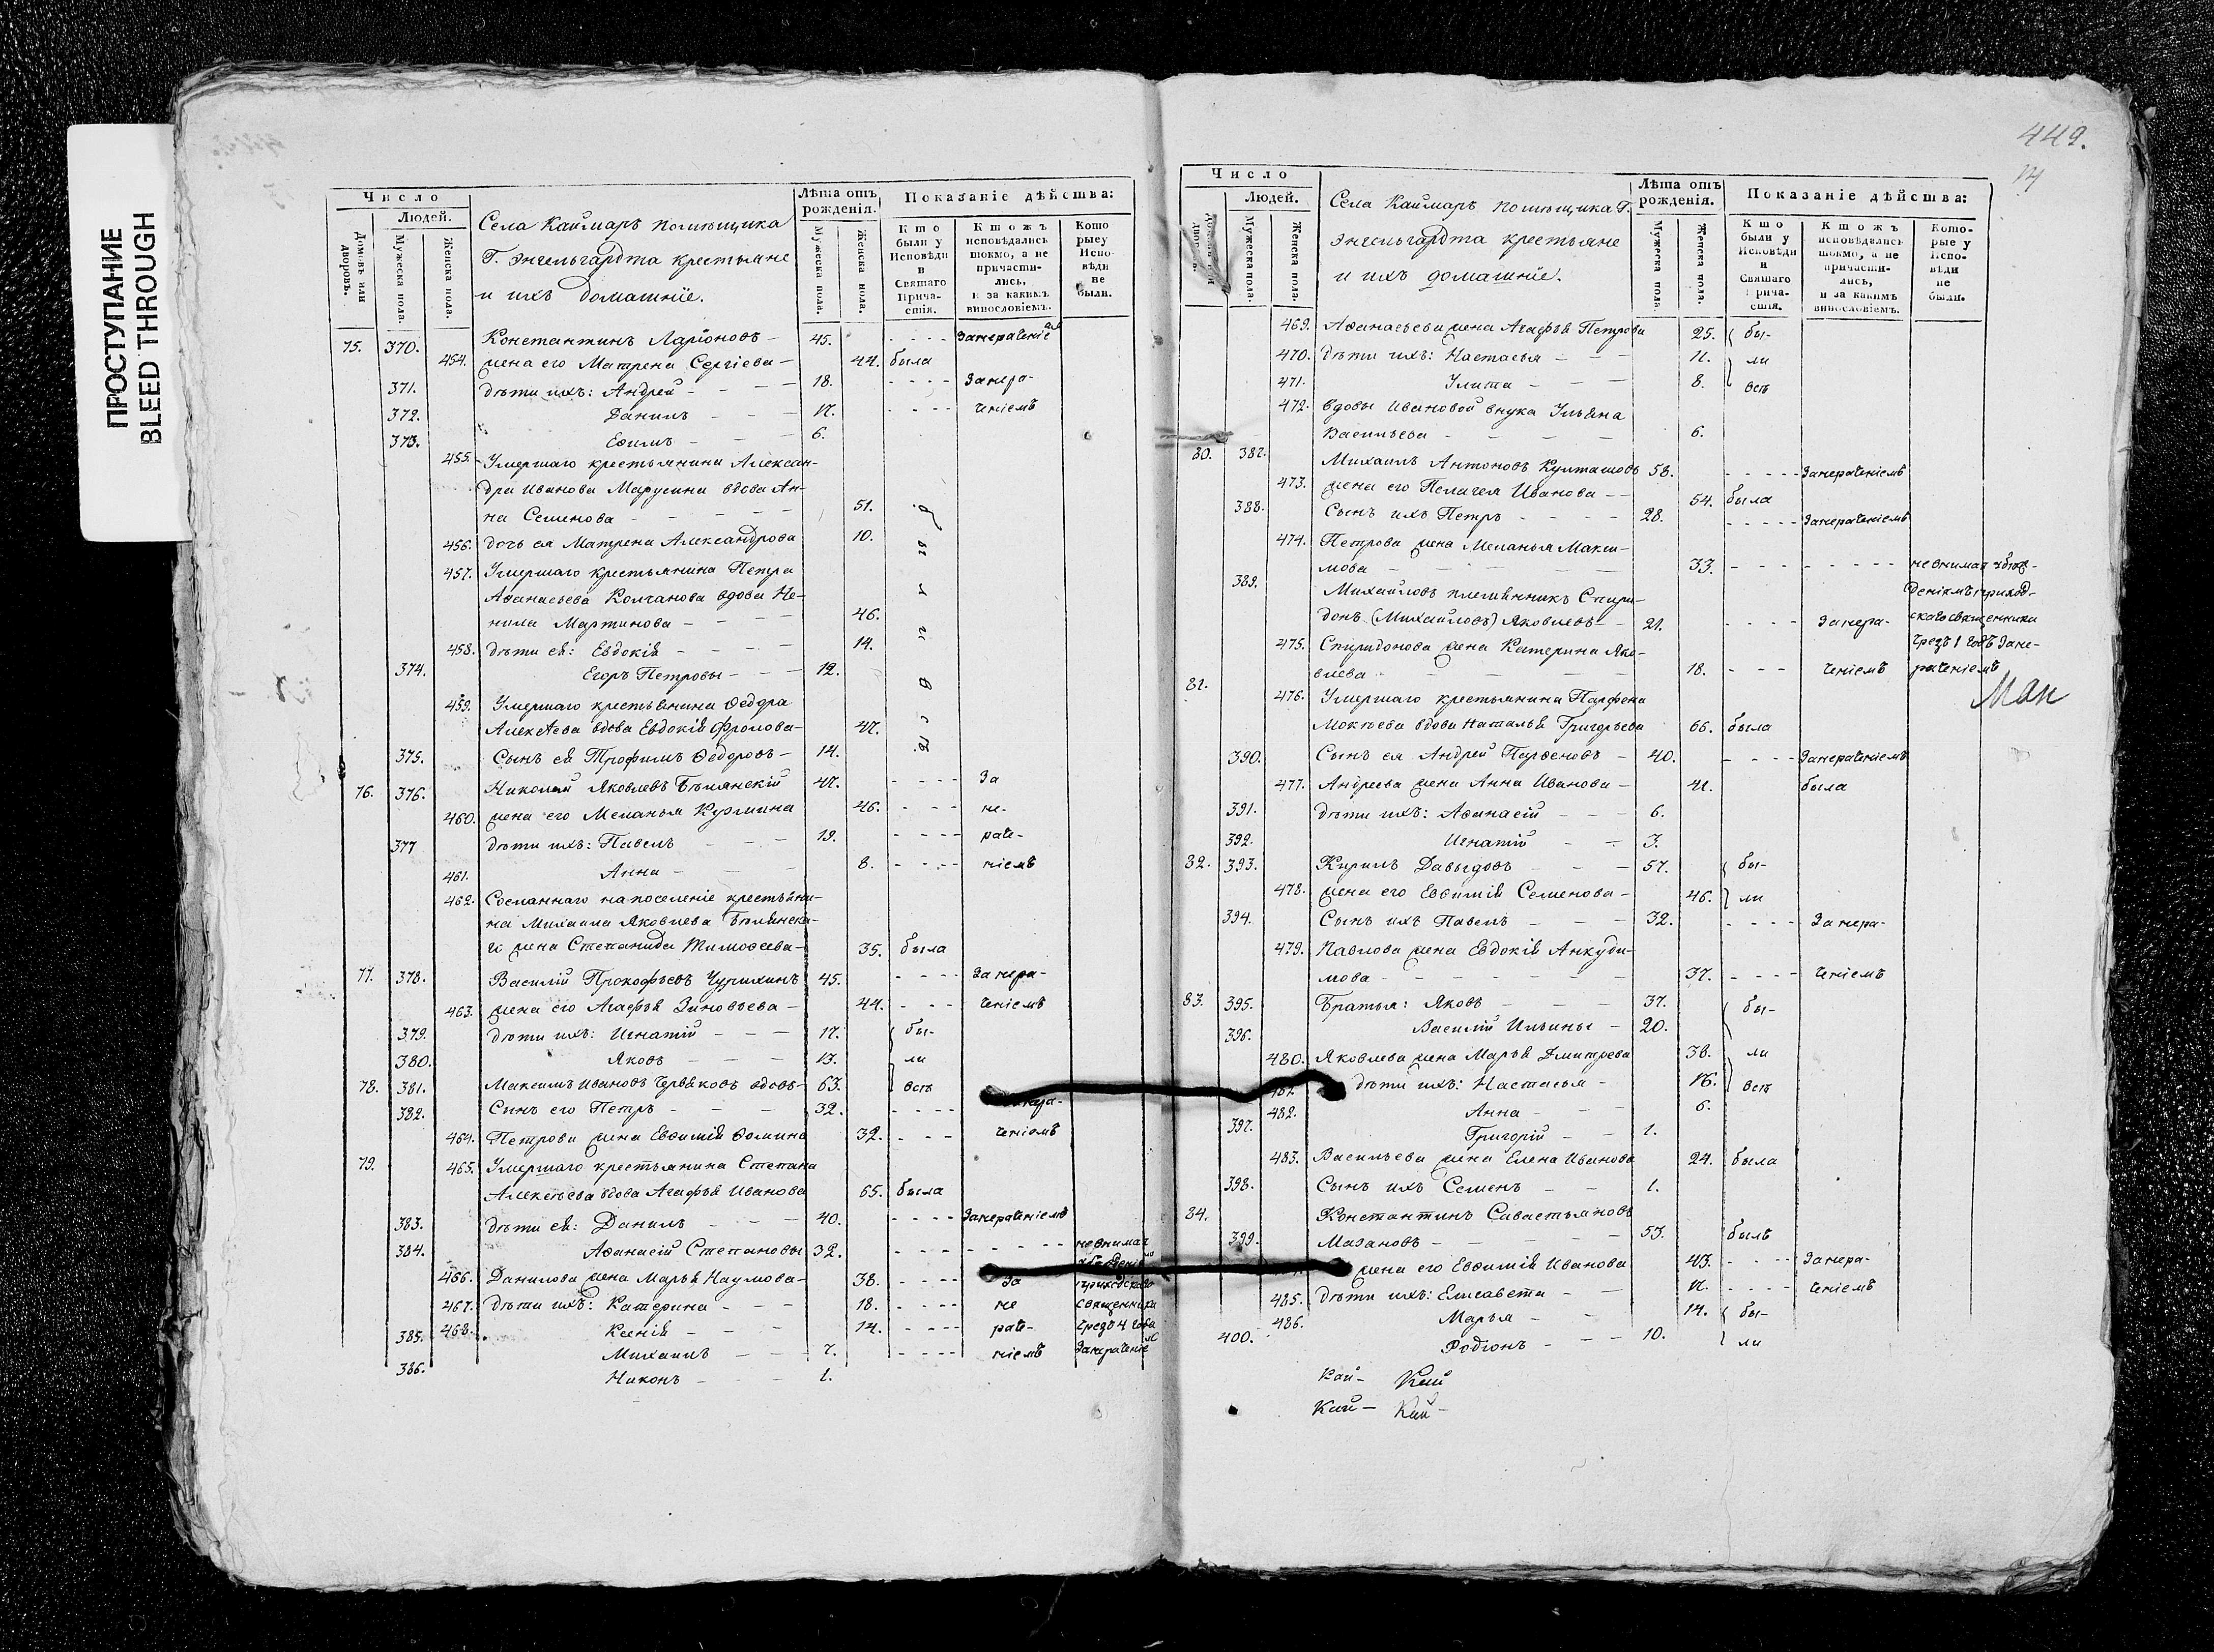 ПРОСТУПАНИЕ
BLEED THROUGH
Число
Людей.
Домовъ или дворовъ.
Мужеска пола.
Женска пола.
Села Каймаръ помѣщика
Г. Энгельгардта крестьяне
и ихъ домашніе.
Лѣта отъ рожденія.
Мужеска пола.
Женска пола.
Показаніе дѣйства:
Кто были у Исповѣди и Святаго Прича- стія.
Ктожъ исповѣдались токмо, а не причасти- лись, и за какимъ винословіемъ.
Кото рыеу Испо- вѣди не были.
75. 370. Константинъ Ларіоновъ - 45. - - - - Занераченіемъ
454. жена его Матрена Сергіева - 44. была
371. дѣти ихъ: Андрей - - - 18. - - - - Занера-
372. Данилъ - - - 17. - - - - ченіемъ
373. Ефимъ - - - 6.
455. Умершаго крестьянина Алексан-
дра Иванова Марусина вдова Ан-
на Семенова - - - - 51.
456. дочь ея Матрена Александрова 10.
457. Умершаго крестьянина Петра
Аѳанасьева Колчанова вдова Не-
нила Мартинова - - - 46.
458. дѣти ея: Евдокія - - - 14.
374. Егоръ Петровы - - - 12.
459. Умершаго крестьянина Ѳедора
Алексѣева вдова Евдокія Фролова - 47.
375. Сынъ ея Трофимъ Ѳедоровъ - 14.
были всѣ
76. 376. Николай Яковлевъ Бѣлянскій 47. - - - - За
460. жена его Меланья Курмина 46. - - - не-
377 дѣти ихъ: Павелъ - - - 19. - - - - раче-
461. Анна - - - 8. - - - - ніемъ
462. Сосланнаго на поселеніе крестьяни-
на Михаила Яковлева Бѣлянска-
го жена Степанида Тимоѳеева - 35. была
77. 378. Василій Прокофьевъ Чурихинъ 45. - - - - Занера-
463. жена его Агафья Зиновьева - 44. - - - ченіемъ
379. дѣти ихъ: Игнатій - - - 17. бы-
380. Яковъ - - - 13. ли
78. 381. Максимъ Ивановъ Червяковъ вдовъ - 63. всѣ
382. Сынъ его Петръ - - - 32. - - - -
464. Петрова жена Евѳимія Ѳомина 32. - - - ченіемъ
79. 465. Умершаго крестьянина Степана
Алексѣева вдова Агафья Иванова 65. была
383. дѣти ея: Данилъ - - - 40. - - - - Занераченіемъ
384. Аѳанасій Степановы 32. - - - - - - - - невнимая
466. Данилова жена Марья Наумова - 38. - - - - За приходскаго
467. дѣти ихъ: Катерина - - - 18. - - - - не священника
468. Ксенія - - - 14. - - - - раче- чрезъ 4 года
385. Михаилъ - - - 7. - - - - ніемъ Занераченіемъ
386. Никонъ - - - 1.
449.
Число
Людей.
Мужеска пола.
Женска пола.
Села Каймаръ помѣщика Г.
Энгельгардта крестьяне
и ихъ домашніе.
Лѣта отъ рожденія.
Мужеска пола.
Женска пола.
Показаніе дѣйства:
Кто были у Исповѣди и Святаго Прича- стія.
Ктожъ исповѣдались токмо, а не причасти- лись, и за какимъ винословіемъ.
Кото- рые у Испо- вѣди не были.
469. Аѳанасьева жена Агафья Петрова 25. бы-
470. дѣти ихъ: Настасья - - - 11. ли
471. Улита - - - 8. всѣ
472. вдовы Ивановой внука Ульяна
Васильева - - - - 6.
80. 387. Михаилъ Антоновъ Култашовъ 58. - - - - - Занераченіемъ
473. жена его Пелагея Иванова - - 54. была
388. Сынъ ихъ Петръ - - - - 28. - - - - - Занераченіемъ
474. Петрова жена Меланья Макси-
мова - - - - - 33. - - - - - - - - невнимая убѣж-
389. Михайловъ племянникъ Спири- деніямъ приход-
донъ (Михайловъ) Яковлевъ - - 21. - - - - Занера- скаго священника
475. Спиридонова жена Катерина Яко- чрезъ 1 годъ Зане-
влева - - - - - 18. - - - ченіемъ раченіемъ
Ман
81. 476. Умершаго крестьянина Парфена
Мокѣева вдова Наталья Григорьева 66. была
390. Сынъ ея Андрей Парѳеновъ - 40. - - - - Занераченіемъ
477. Андреева жена Анна Иванова - 41. была
391. дѣти ихъ: Аѳанасій - - - 6.
392. Игнатій - - 3.
82. 393. Кирилъ Давыдовъ - - - 57. бы-
478. жена его Евѳимія Семенова - 46. ли
394. Сынъ ихъ Павелъ - - - 32. - - - - Занера-
479. Павлова жена Евдокія Анкуди-
мова - - - - - - 37. - - - - ченіемъ
83. 395. Братья: Яковъ - - - 37. бы-
396. Василій Ильины - 20.
480. Яковлева жена Марья Дмитрева 38. ли
481. дѣти ихъ: Настасья - 16. всѣ
482. Анна - - - 6.
397. Григорій - - 1.
483. Васильева жена Елена Иванова 24. была
398. Сынъ ихъ Семенъ - - 1.
84. Константинъ Савастьяновъ
399. Мазановъ - - - - - 53. былъ
жена его Евѳимія Иванова 43. - - - - Занера-
485. дѣти ихъ: Елисавета - - 17. - - - - ченіемъ
486. Марья - - 14. бы-
400. Родіонъ - - - 10. ли
Кай- Кай
Кай- Кай-